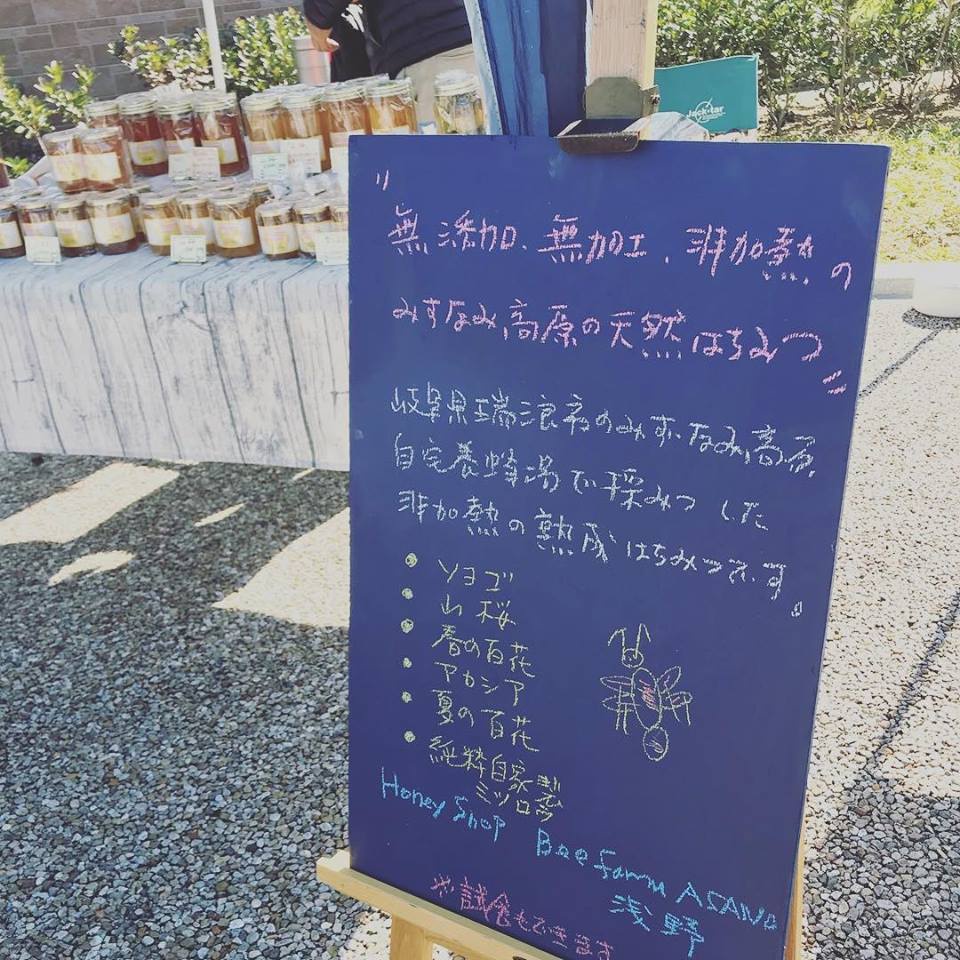 Jack-tar
〃
無添加、無加工、非加熱の
みずなみ高原の天然はちみつ
〃
岐阜県瑞浪市のみずなみ高原
自宅養蜂場で採みつした
非加熱の熟成はちみつです。
• ソヨゴ
• 山桜
• 春の百花
• アカシア
• 夏の百花
• 純粋自家製
ミツロウ
Honey Shop Bee farm ASANO
浅野
※試食もできます